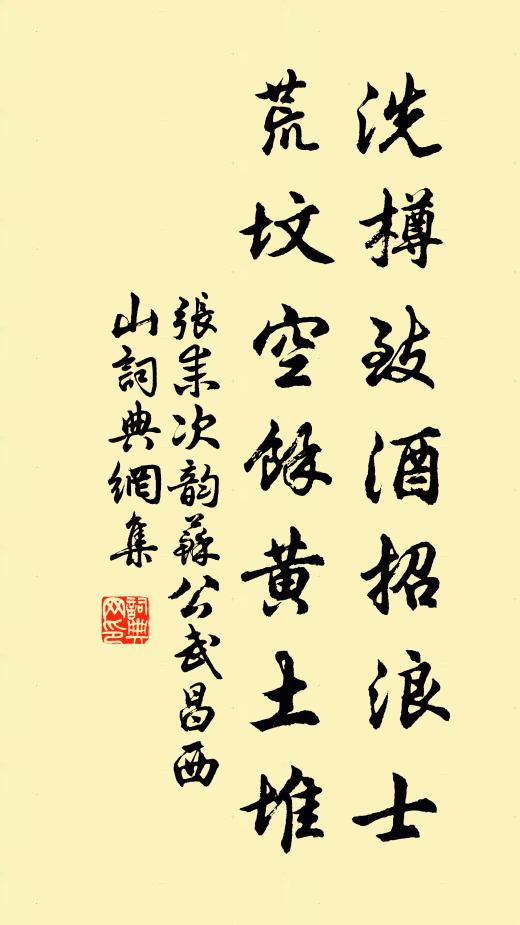 洗樽致酒招浪士
荒坟空餘黄土堆
張耒次韵蘇公武昌西
山詞典網集
詞典
网印